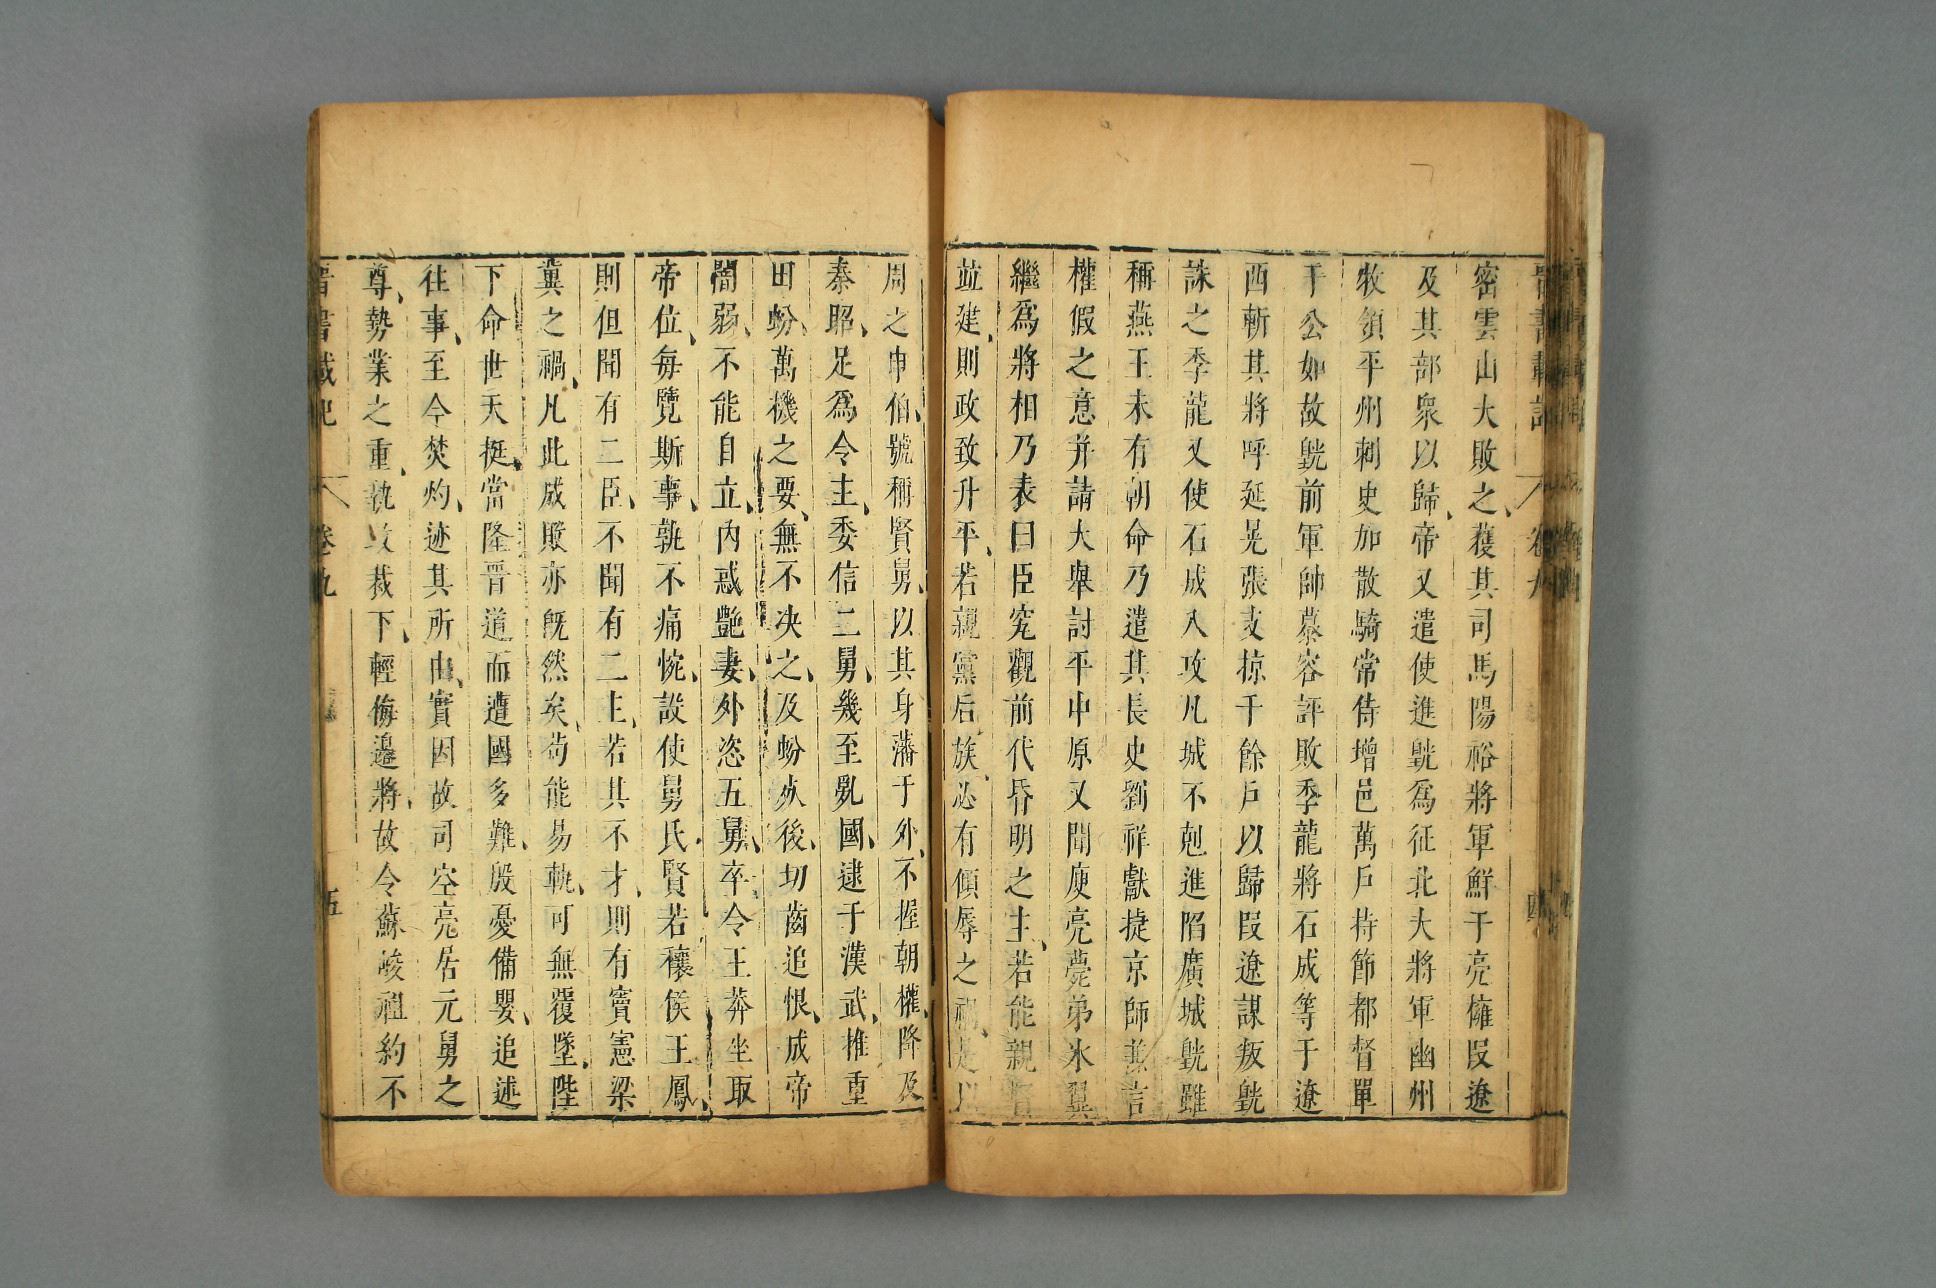 密雲山大敗之獲其司馬陽裕將軍鮮于亮擁段遼
及其部衆以歸帝又遣使進皝爲征北大將軍幽州
牧領平州刺史加散騎常侍增邑萬戶持節都督單
于公如故皝前軍帥慕容評敗季龍將石成等于遼
西斬其將呼延晃張支掠千餘戶以歸段遼謀叛皝
誅之季龍又使石成入攻凡城不剋進陷廣城皝雖
稱燕王未有朝命乃遣其長史劉祥獻捷京師兼言
權假之意并請大舉討平中原又聞庾亮薨弟氷翼
繼爲將相乃表曰臣究觀前代昏明之主若能親賢
並建則政致升平若親黨后族必有傾辱之禍是以
周之申伯號稱賢舅以其身藩于外不握朝權降及
秦昭足爲令主委信二舅幾至亂國逮于漢武推重
田蚡萬機之要無不决之及蚡死後切齒追恨成帝
闇弱不能自立內惑艷妻外恣五舅卒令王莽坐取
帝位每覽斯事孰不痛惋設使舅氏賢若穰侯王鳳
則但聞有二臣不聞有二主若其不才則有竇憲梁
冀之禍凡此成敗亦旣然矣苟能易軌可無覆墜陛
下命世天挺當隆晉道而遭國多難殷憂備嬰追述
往事至今焚灼迹其所由實因故司空亮居元舅之
尊勢業之重執政裁下輕侮邊將故令蘇峻祖約不
晉書載記 卷九 五